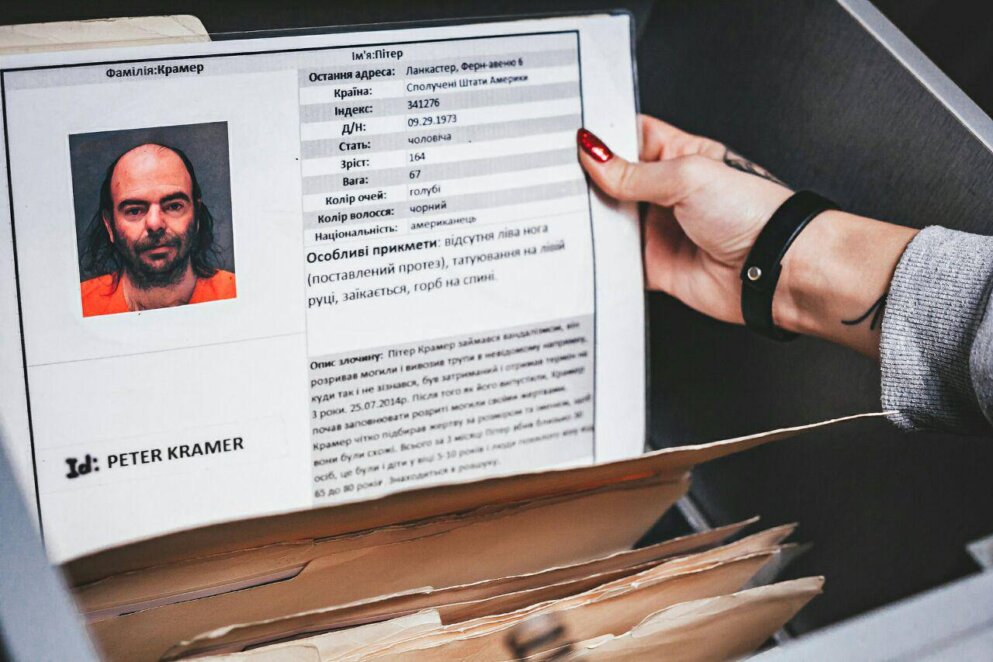 Фамілія:Крамер
Ім'я:Пітер
Остання адреса: Ланкастер, Ферн-авеню 6
Країна: Сполучені Штати Америки
Індекс: 341276
Д/Н: 09.29.1973
Стать: чоловіча
Зріст: 164
Вага: 67
Колір очей: голубі
Колір волосся: чорний
Національність: американець
Особливі прикмети: відсутня ліва нога
(поставлений протез), татуювання на лівій
руці, заїкається, горб на спині.
Опис злочину: Пітер Крамер займався вандалізмом, він
розривав могили і вивозив трупи в невідомому напрямку,
куди так і не зізнався, був затриманий і отримав термін на
3 роки. 25.07.2014р. Після того як його випустили, Крамер
почав заповнювати розриті могили своїми жертвами.
Крамер чітко підбирав жертву за розміром та іменем, щоб
вони були схожі. Всього за 3 місяці Пітер вбив близько 30
осіб, це були і діти у віці 5-10 років і люди похилого віку від
65 до 80 років. Знаходиться в розшуку.
Id: PETER KRAMER